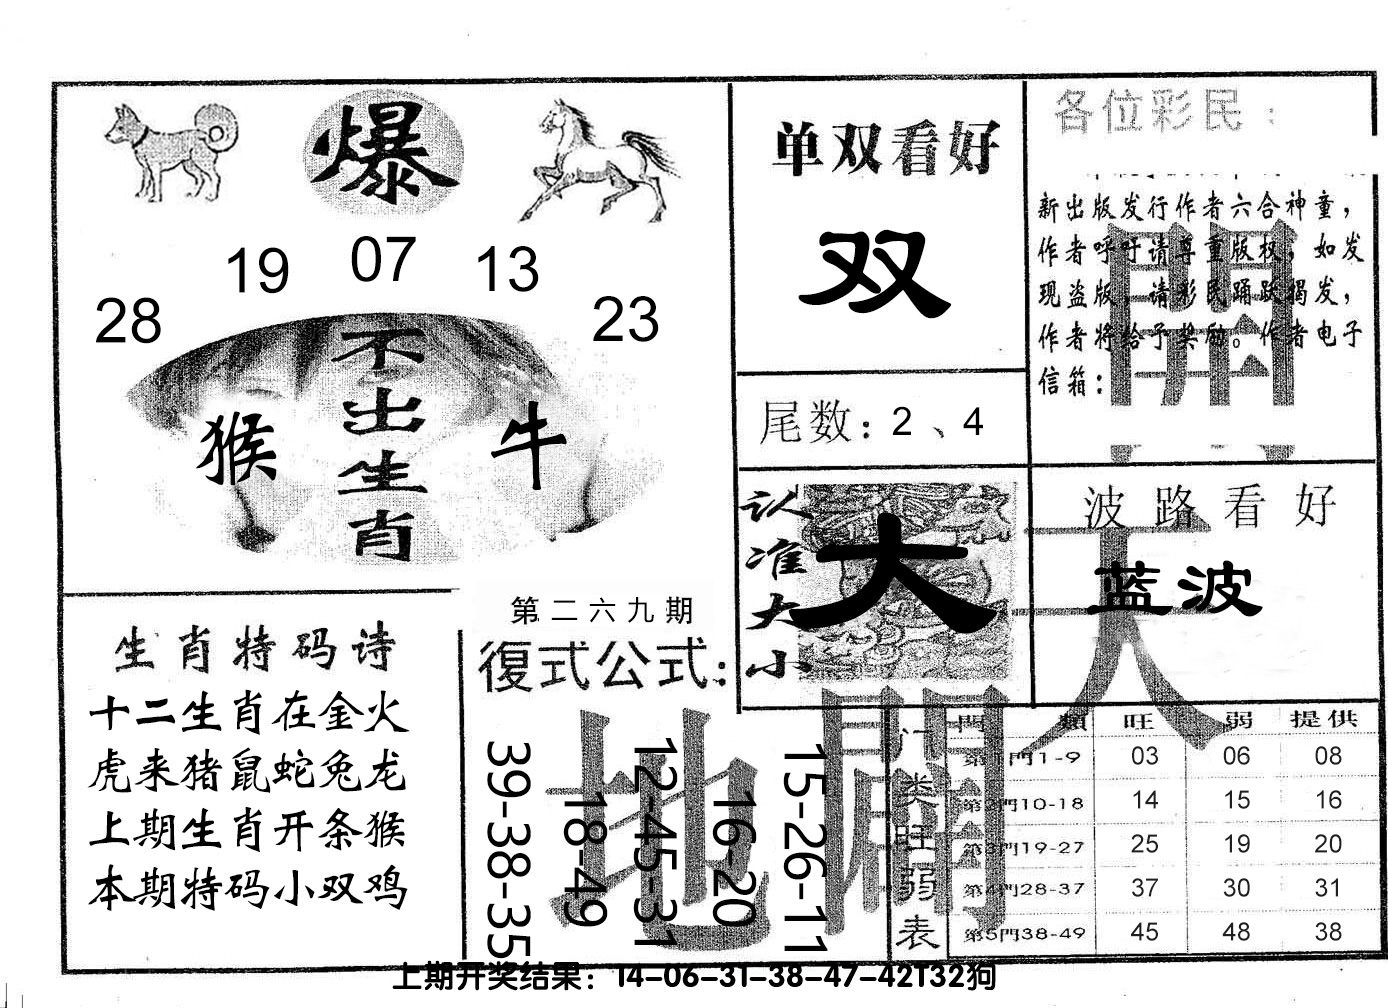 爆
28 19 07 13 23
不出生肖
猴 牛
单双看好
双
尾数：2、4
各位彩民：
新出版发行作者六合神童，
作者呼吁请尊重版权，如发
现盗版，请彩民踊跃揭发，
作者将给予奖励。作者电子
信箱：
開
认准大小
大
波路看好
蓝波
天
生肖特码诗
十二生肖在金火
虎来猪鼠蛇兔龙
上期生肖开条猴
本期特码小双鸡
第二六九期
復式公式：
39-38-35
18-49
12-45-31
16-20
15-26-11
地
闢
门类旺弱表
門類 旺 弱 提供
第1門1-9 03 06 08
第2門10-18 14 15 16
第3門19-27 25 19 20
第4門28-37 37 30 31
第5門38-49 45 48 38
上期开奖结果：14-06-31-38-47-42T32狗